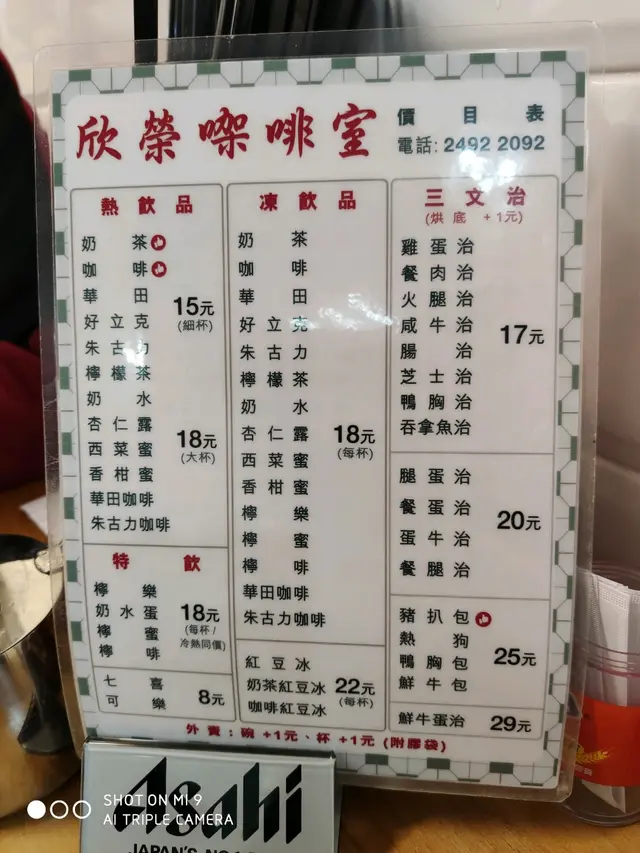 欣榮㗎啡室
價目表
電話: 2492 2092
熱飲品
奶茶
咖啡
華田
好立克
朱古力
檸檬茶
奶水
杏仁露
西菜蜜
香柑蜜
華田咖啡
朱古力咖啡
15元
(細杯)
18元
(大杯)
特飲
檸樂
奶水蛋
檸蜜
檸啡
18元
(每杯/
冷熱同價)
七喜
可樂
8元
凍飲品
奶茶
咖啡
華田
好立克
朱古力
檸檬茶
奶水
杏仁露
西菜蜜
香柑蜜
檸樂
檸蜜
檸啡
華田咖啡
朱古力咖啡
18元
(每杯)
紅豆冰
奶茶紅豆冰
咖啡紅豆冰
22元
(每杯)
三文治
(烘底 +1元)
雞蛋治
餐肉治
火腿治
咸牛治
腸治
芝士治
鴨胸治
吞拿魚治
17元
腿蛋治
餐蛋治
蛋牛治
餐腿治
20元
豬扒包
熱狗
鴨胸包
鮮牛包
25元
鮮牛蛋治 29元
外賣:碗 +1元、杯 +1元 (附膠袋)
Asahi
SHOT ON MI 9
AI TRIPLE CAMERA